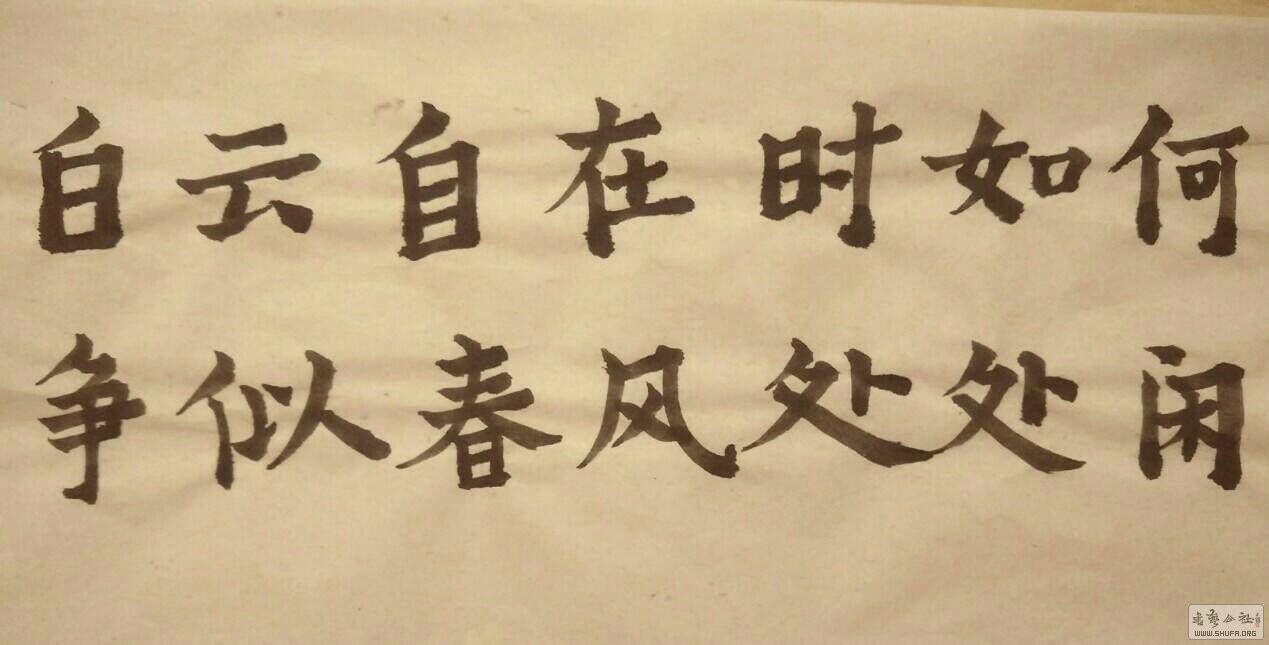 白云自在时如何
争似春风处处闲
WWW.SHUFA.ORG